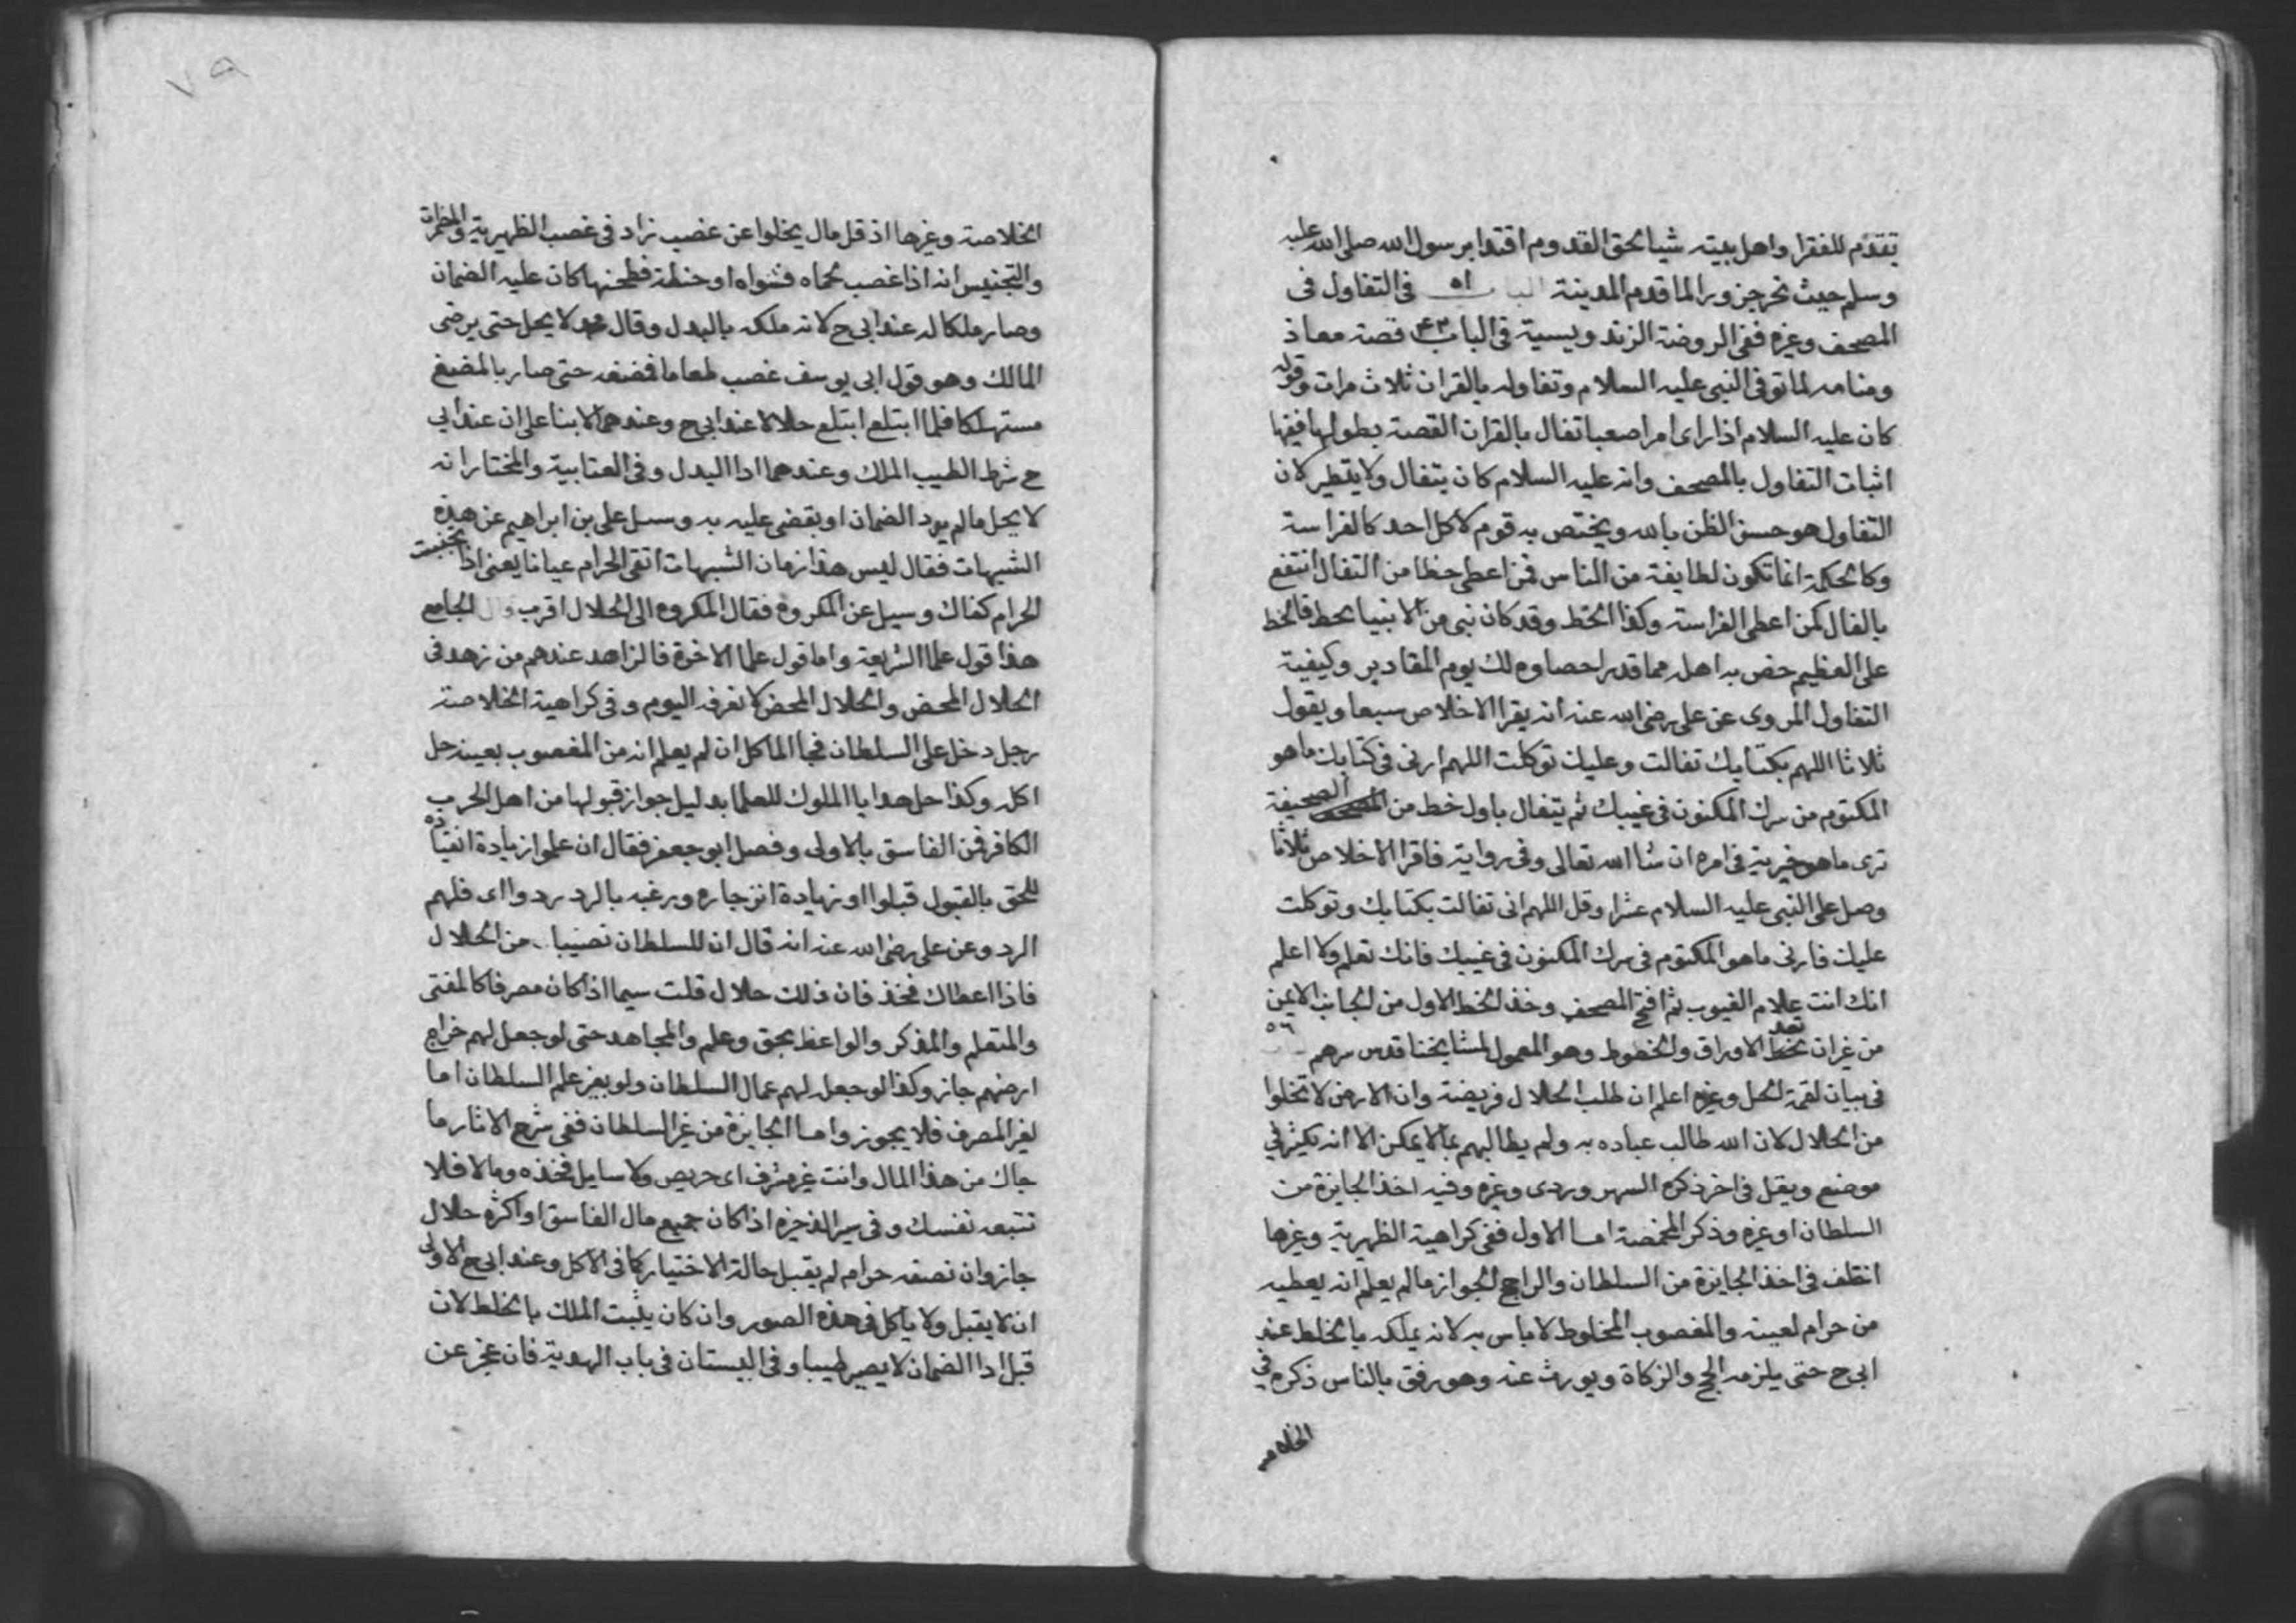 تقدم للفقرا واهل بيته شيا لحق القدوم اقتدا برسول الله صلى الله عليه
وسلم حيث نحر جزورا لما قدم المدينة الباب ٥١ فى التفاول فى
المصحف وغيره ففى الروضة الزندويسية فى الباب ٤٣ قصة معاذ
ومنامه لما توفى النبى عليه السلام وتفاوله بالقران ثلاث مرات وقوله
كان عليه السلام اذا راى امرا صعبا تفال بالقران القصة بطولها ففيها
اثبات التفاول بالمصحف وانه عليه السلام كان يتفال ولا يتطير لان
التفاول هو حسن الظن بالله ويختص به قوم لا كل احد كالفراسة
وكالحكمة انما تكون لطايفة من الناس فمن اعطى حظا من التفال انتفع
بالفال كمن اعطى الفراسة وكذا الخط وقد كان نبى من الانبيا يخط فالخط
على العظيم خص به اهله مما قدر احصاوه لك يوم المقادير وكيفية
التفاول المروى عن على رضى الله عنه انه يقرا الاخلاص سبعا ويقول
ثلاثا اللهم بكتابك تفالت وعليك توكلت اللهم ارنى فى كتابك ما هو
المكتوم من سرك المكنون فى غيبك ثم يتفال باول خط من الصحيفة
ترى ما هو خيرية فى امره ان شا الله تعالى وفى رواية فاقرا الاخلاص ثلاثا
وصل على النبى عليه السلام عشرا وقل اللهم انى تفالت بكتابك وتوكلت
عليك فارنى ما هو المكتوم فى سرك المكنون فى غيبك فانك تعلم ولا اعلم
انك انت علام الغيوب ثم افتح المصحف وخذ الخط الاول من الجانب الايمن
من غير ان تعد الاوراق والخطوط وهو المعمول لمشايخنا قدس سرهم ٥٦
فى بيان لقمة الحل وغيره اعلم ان طلب الحلال فريضة وان الارض لا تخلوا
من الحلال لان الله طالب عباده به ولم يطالبهم بما لا يمكن الا انه يكثر فى
موضع ويقل فى اخر ذكره السهروردى وغيره وفيه اخذ الجايزة من
السلطان او غيره وذكر المخمصة اما الاول ففى كراهية الظهيرية وغيرها
اختلف فى اخذ الجايزة من السلطان والراجح الجواز ما لم يعلم انه يعطيه
من حرام لعينه والمغصوب المخلوط لا باس به لانه يملكه بالخلط عند
ابى ح حتى يلزمه الحج والزكاة ويورث عنه وهو رفق بالناس ذكره فى
الخلاصه
٧٩
الخلاصة وغيرها اذ قل مال يخلوا عن غصب زاد فى غصب الظهيرية والمضمرات
والتجنيس انه اذا غصب لحما فشواه او حنطة فطحنها كان عليه الضمان
وصار ملكا له عند ابى ح لانه ملكه بالبدل وقال محمد لا يحل حتى يرضى
المالك وهو قول ابى يوسف غصب طعاما فمضغه حتى صار بالمضغ
مستهلكا فلما ابتلع ابتلع حلالا عند ابى ح وعندهما لا بنا على ان عند ابى
ح شرط الطيب الملك وعندهما ادا البدل وفى العتابية والمختار انه
لا يحل ما لم يود الضمان او يقضى عليه به وسيل على بن ابراهيم عن هذه
الشبهات فقال ليس هذا زمان الشبهات اتقى الحرام عيانا يعنى اذا تجنبت
الحرام كفاك وسيل عن المكروه فقال المكروه الى الحلال اقرب قال الجامع
هذا قول علما الشريعة واما قول علما الاخرة فالزاهد عندهم من زهد فى
الحلال المحض والحلال المحض لا نعرفه اليوم وفى كراهية الخلاصة
رجل دخل على السلطان فجا الماكل ان لم يعلم انه من المغصوب بعينه حل
اكله وكذا حل هدايا الملوك للعلما بدليل جواز قبولها من اهل الحرب
الكافر فمن الفاسق بالاولى وفصل ابو جعفر فقال ان علموا زيادة انقياده
للحق بالقبول قبلوا او زيادة انزجاره ورغبه بالرد ردوا اى فلهم
الرد وعن على رضى الله عنه انه قال ان للسلطان نصيبا من الحلال
فاذا اعطاك فخذ فان ذلك حلال قلت سيما اذا كان مصرفا كالمفتى
والمتعلم والمذكر والواعظ بحق وعلم والمجاهد حتى لو جعل لهم خراج
ارضهم جاز وكذا لو جعل لهم عمال السلطان ولو بغير علم السلطان اما
لغير المصرف فلا يجوز واما الجايزة من غير السلطان ففى شرع الاثار ما
جاك من هذا المال وانت غير مشرف اى حريص ولا سايل فخذه وما لا فلا
تتبعه نفسك وفى سير الذخيرة اذا كان جميع مال الفاسق او اكثره حلال
جاز وان نصفه حرام لم يقبل حالة الاختيار كما فى الاكل وعند ابى ح الاولى
ان لا يقبل ولا ياكل فى هذه الصور وان كان يثبت الملك بالخلط لان
قبل ادا الضمان لا يصير طيبا وفى البستان فى باب الهدية فان عجز عن